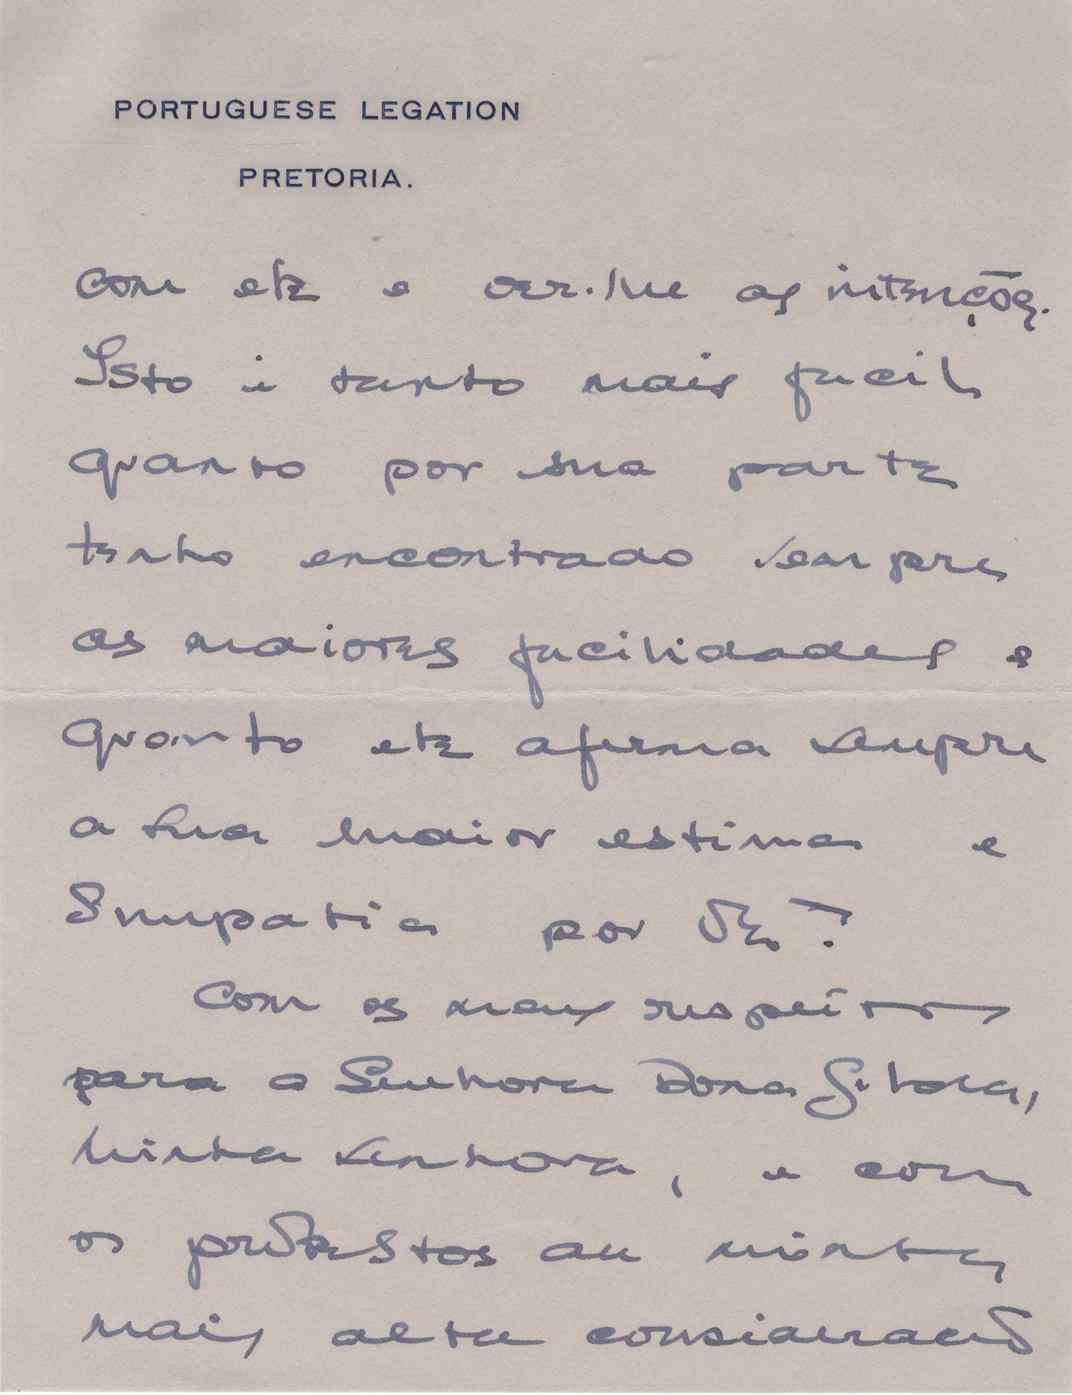 PORTUGUESE LEGATION
PRETORIA.
com ele e ver-lhe as intenções.
Isto é tanto mais facil
quanto por sua parte
tenho encontrado sempre
as maiores facilidades e
quanto ele afirma sempre
a sua maior estima e
simpatia por
Com os meus respeitos
para a Senhora Dona
minha senhora, e com
os protestos da minha
mais alta consideração